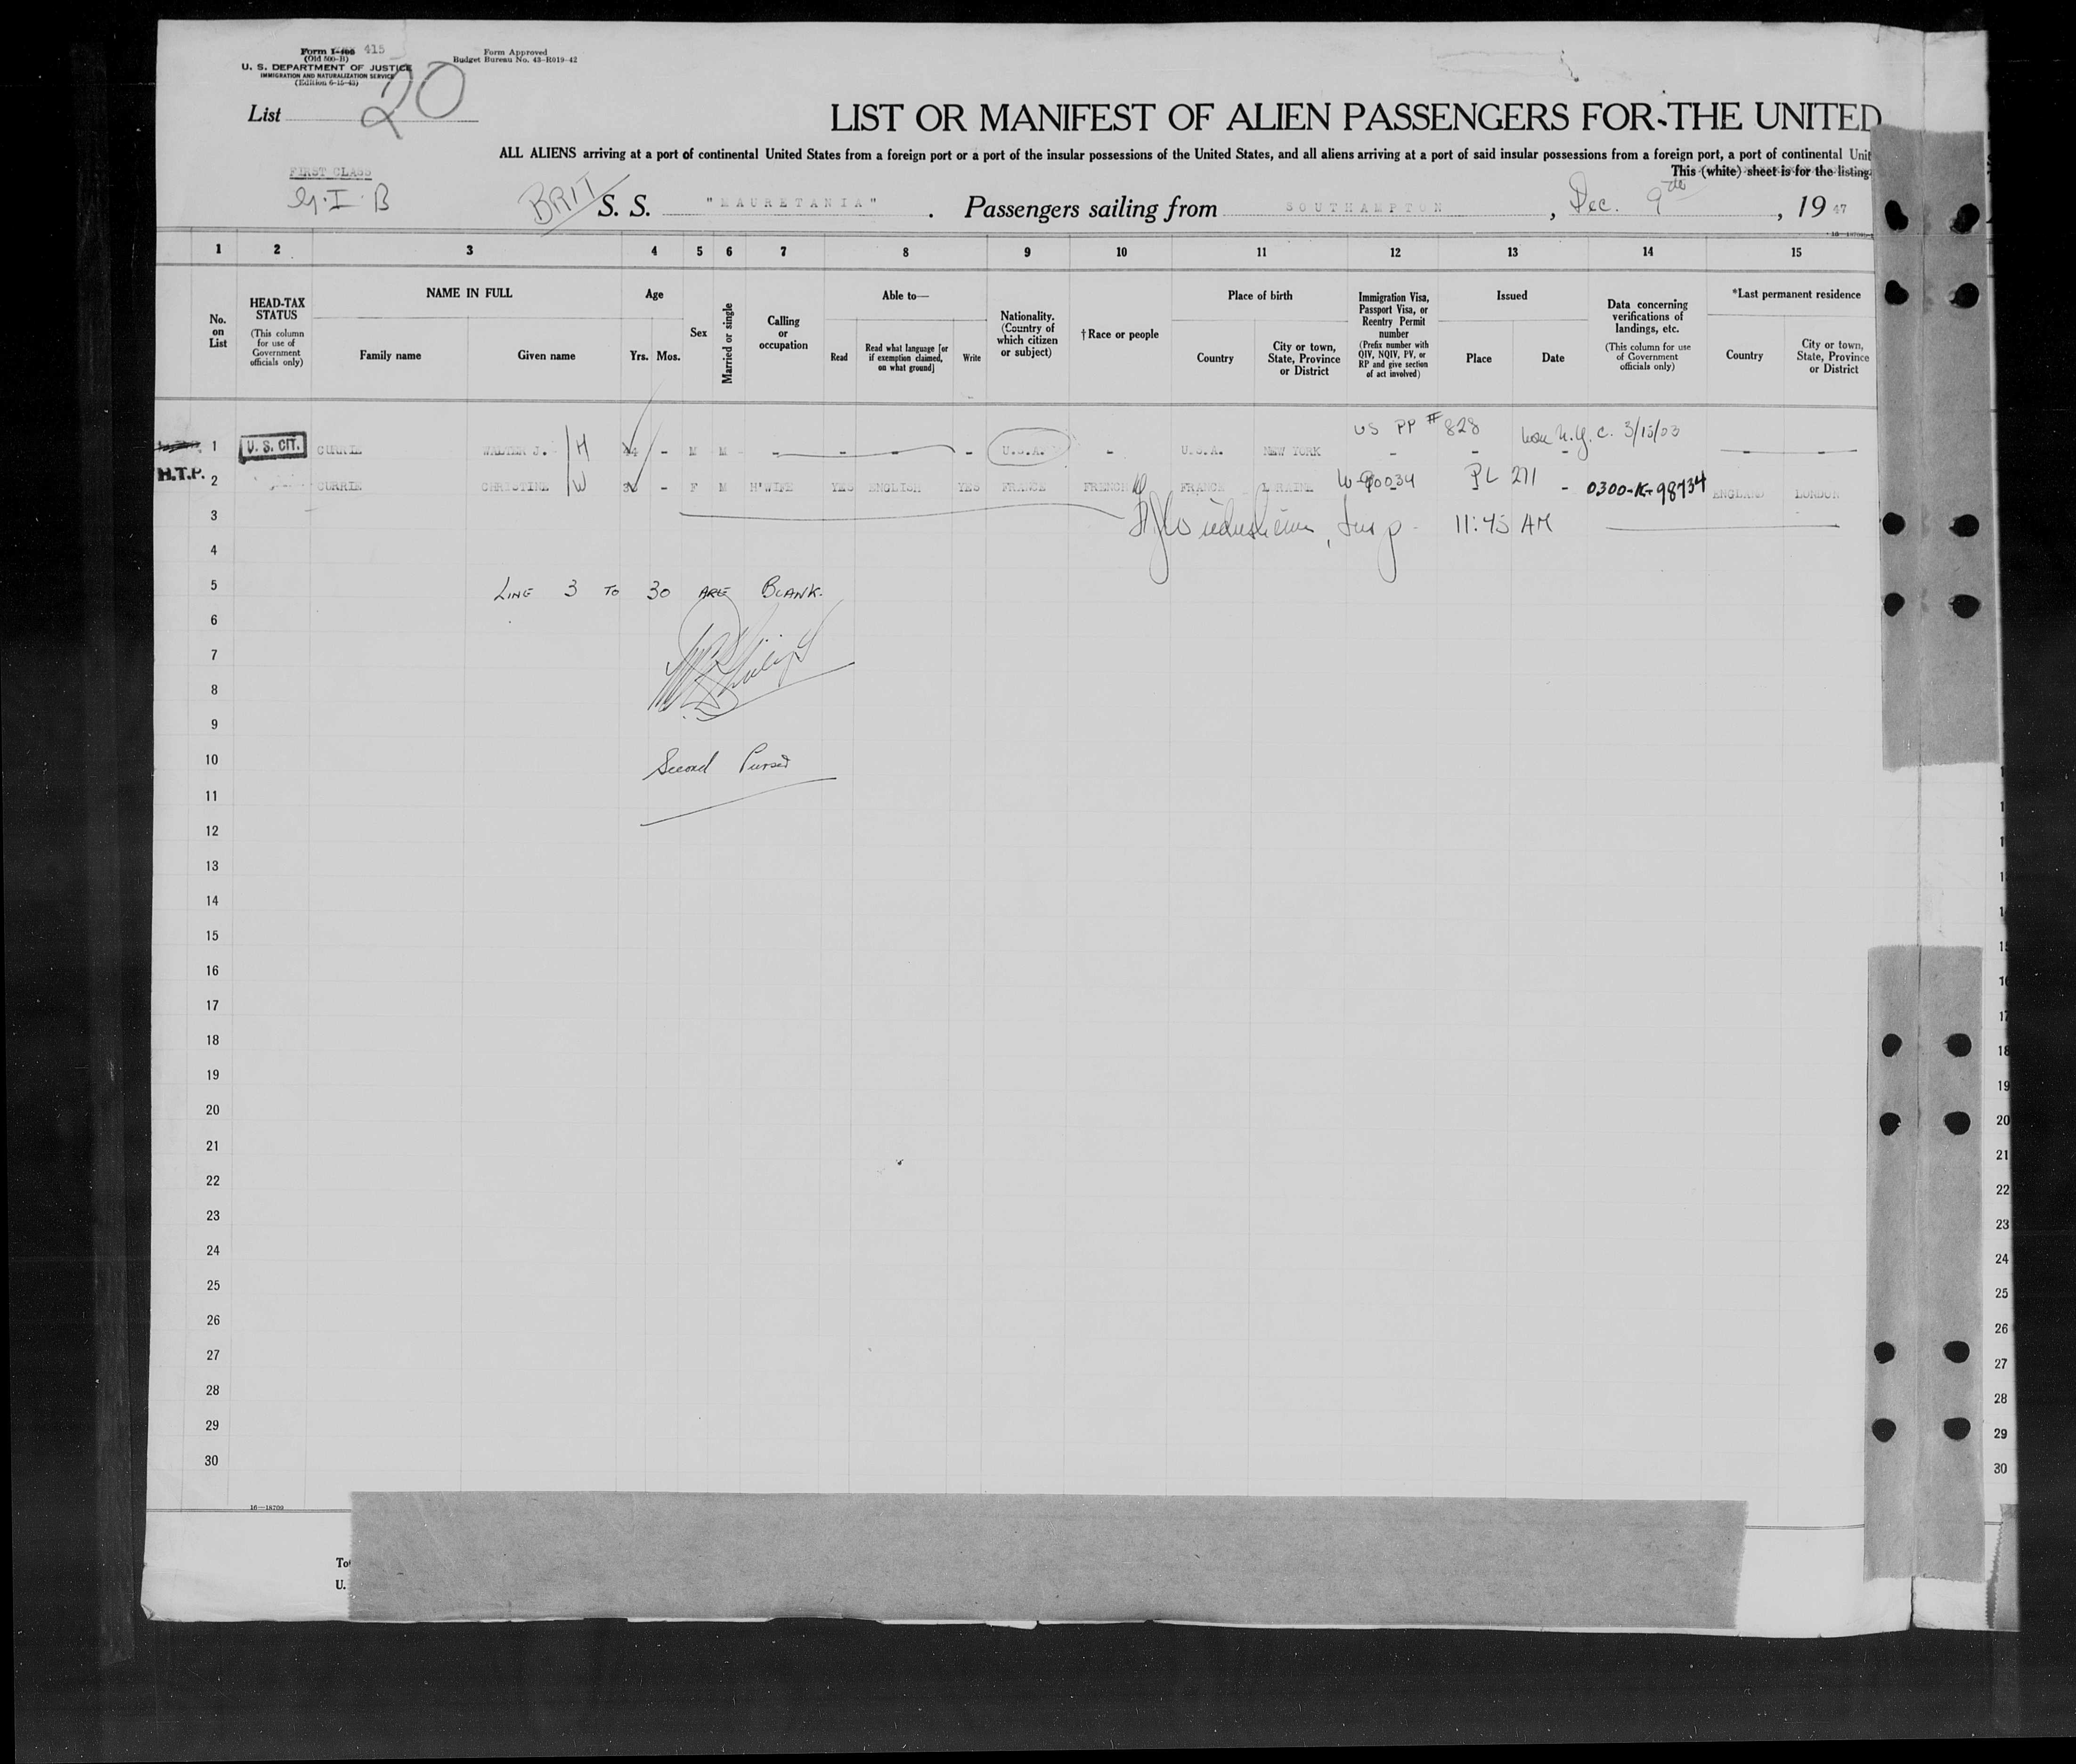 Form I-466 415
(Old 500-B)
U. S. DEPARTMENT OF JUSTICE
IMMIGRATION AND NATURALIZATION SERVICE
(Edition 6-15-43)
Form Approved
Budget Bureau No. 43-R019-42
List 20
LIST OR MANIFEST OF ALIEN PASSENGERS FOR THE UNITED
ALL ALIENS arriving at a port of continental United States from a foreign port or a port of the insular possessions of the United States, and all aliens arriving at a port of said insular possessions from a foreign port, a port of continental Unit
This (white) sheet is for the listing
FIRST CLASS
G.I.B
BRIT S. S. "MAURETANIA". Passengers sailing from SOUTHAMPTON, Dec. 9th, 1947
1 2 3 4 5 6 7 8 9 10 11 12 13 14 15
No. on List
HEAD-TAX STATUS
(This column for use of Government officials only)
NAME IN FULL
Family name Given name
Age
Yrs. Mos.
Sex
Married or single
Calling or occupation
Able to—
Read
Read what language [or if exemption claimed, on what ground]
Write
Nationality. (Country of which citizen or subject)
†Race or people
Place of birth
Country
City or town, State, Province or District
Immigration Visa, Passport Visa, or Reentry Permit number
(Prefix number with QIV, NQIV, PV, or RP and give section of act involved)
Issued
Place Date
Data concerning verifications of landings, etc.
(This column for use of Government officials only)
*Last permanent residence
Country
City or town, State, Province or District
US PP # 828 N.Y.C. 3/15/03
1 U. S. CIT. CURRIE WALTER J. H 44 - M M - - - - U.S.A. - U.S.A. NEW YORK - - - - -
H.T.P. 2 CURRIE CHRISTINE W - F M H'WIFE YES ENGLISH YES FRANCE FRENCH FRANCE LORAINE PL 271 - 0300-K-98734 ENGLAND LONDON
3 Insp. 11:45 AM
4
5 LINE 3 TO 30 ARE BLANK.
6
7
8
9
10 Second Purser
11
12
13
14
15
16
17
18
19
20
21
22
23
24
25
26
27
28
29
30
16—18700
U.